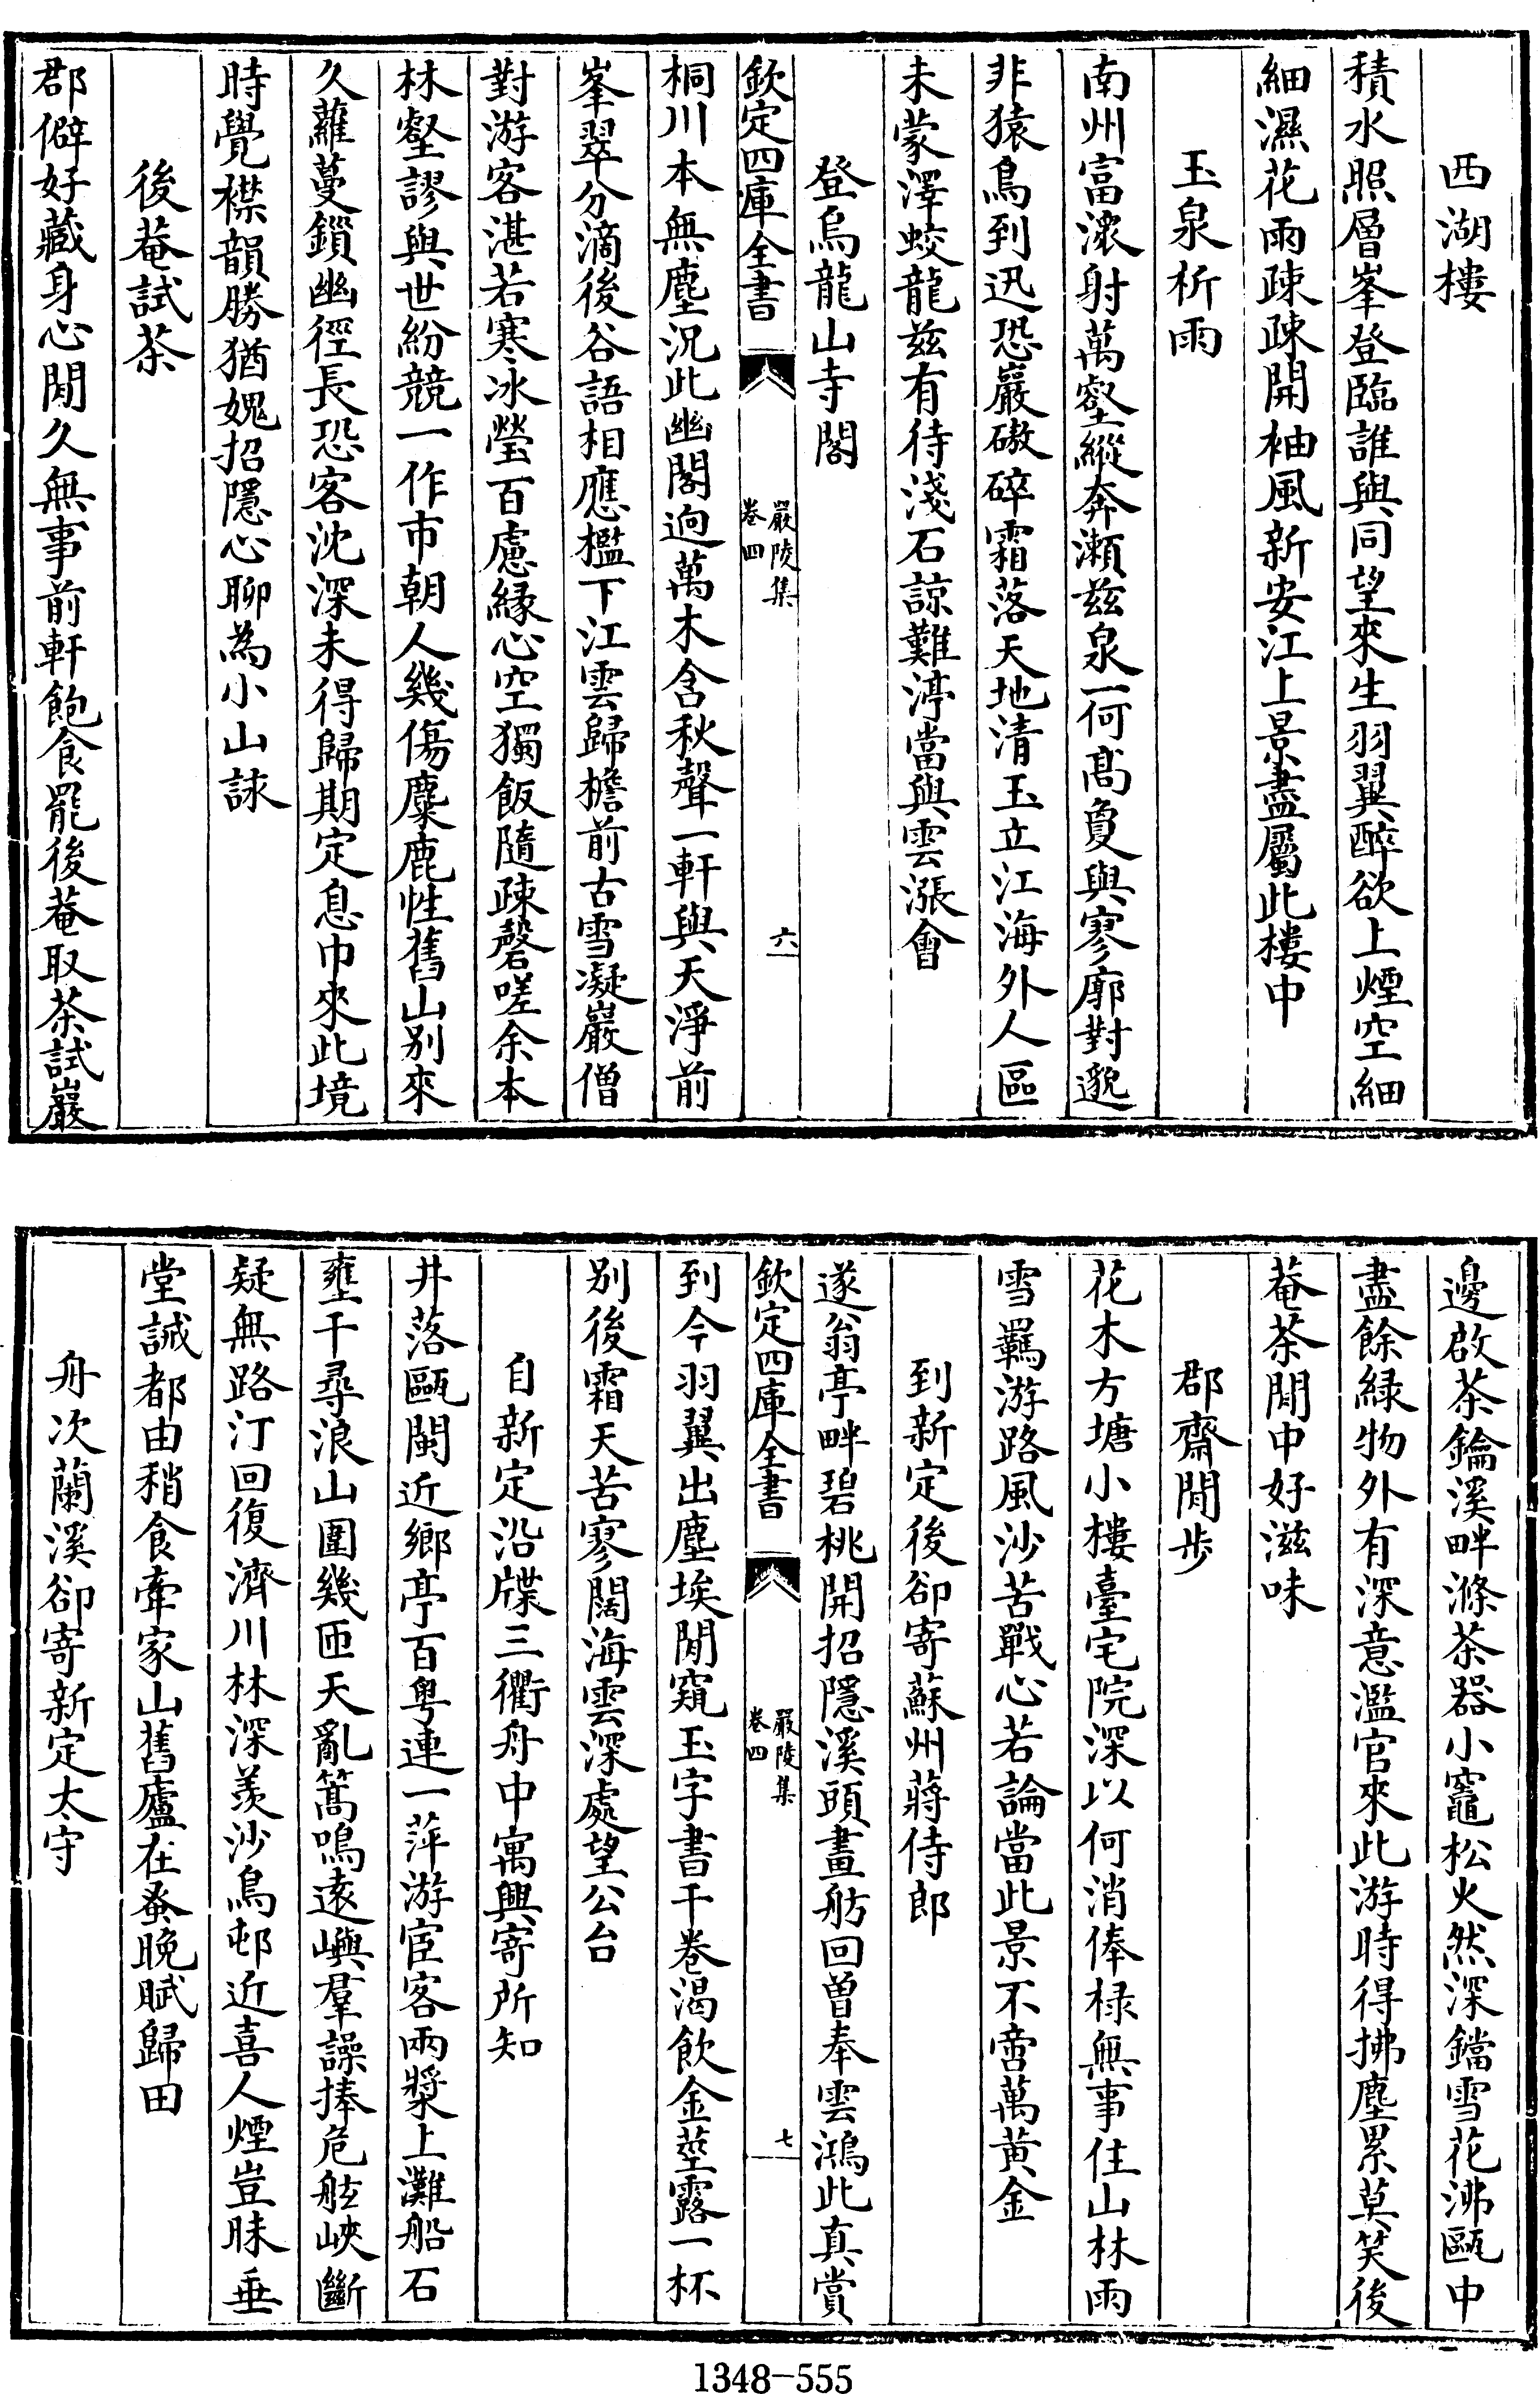 西湖樓
積水照層峯登臨誰與同望來生羽翼醉欲上煙空細
細濕花雨疎疎開袖風新安江上景盡屬此樓中
玉泉析雨
南州富濃射萬壑縱奔瀨兹泉一何髙敻與寥廓對邈
非猿鳥到迅恐巖磝碎霜落天地清玉立江海外人區
未蒙澤蛟龍兹有待淺石諒難渟當與雲漲會
登烏龍山寺閣
欽定四庫全書
嚴陵集
卷四
六
桐川本無塵況此幽閣逈萬木含秋聲一軒與天淨前
峯翠分滴後谷語相應檻下江雲歸檐前古雪凝巖僧
對游客湛若寒冰瑩百慮緣心空獨飯隨疎磬嗟余本
林壑謬與世紛競一作市朝人幾傷麋鹿性舊山别來
久蘿蔓鎻幽徑長恐客沈深未得歸期定息巾來此境
時覺襟韻勝猶媿招隱心聊為小山詠
後菴試茶
郡僻好藏身心閒久無事前軒飽食罷後菴取茶試巖
邊啟茶鑰溪畔滌茶器小竈松火然深鐺雪花沸甌中
盡餘緑物外有深意濫官來此游時得拂塵累莫笑後
菴茶閒中好滋味
郡齋閒步
花木方塘小樓臺宅院深以何消俸禄無事住山林雨
雪羈游路風沙苦戰心若論當此景不啻萬黄金
到新定後卻寄蘇州蔣侍郎
遂翁亭畔碧桃開招隱溪頭畫舫回曽奉雲鴻此真賞
欽定四庫全書
嚴陵集
卷四
七
到今羽翼出塵埃閒窺玉字書千卷渴飲金莖露一杯
别後霜天苦寥闊海雲深處望公台
自新定沿牒三衢舟中寓興寄所知
井落甌閩近鄉亭百粤連一萍游宦客兩槳上灘船石
壅千尋浪山圍幾匝天亂篙鳴遠嶼羣譟捧危舷峽斷
疑無路汀回復濟川林深羨沙鳥邨近喜人煙豈昧垂
堂誡都由稍食牽家山舊廬在蚤晚賦歸田
舟次蘭溪卻寄新定太守
1348-555